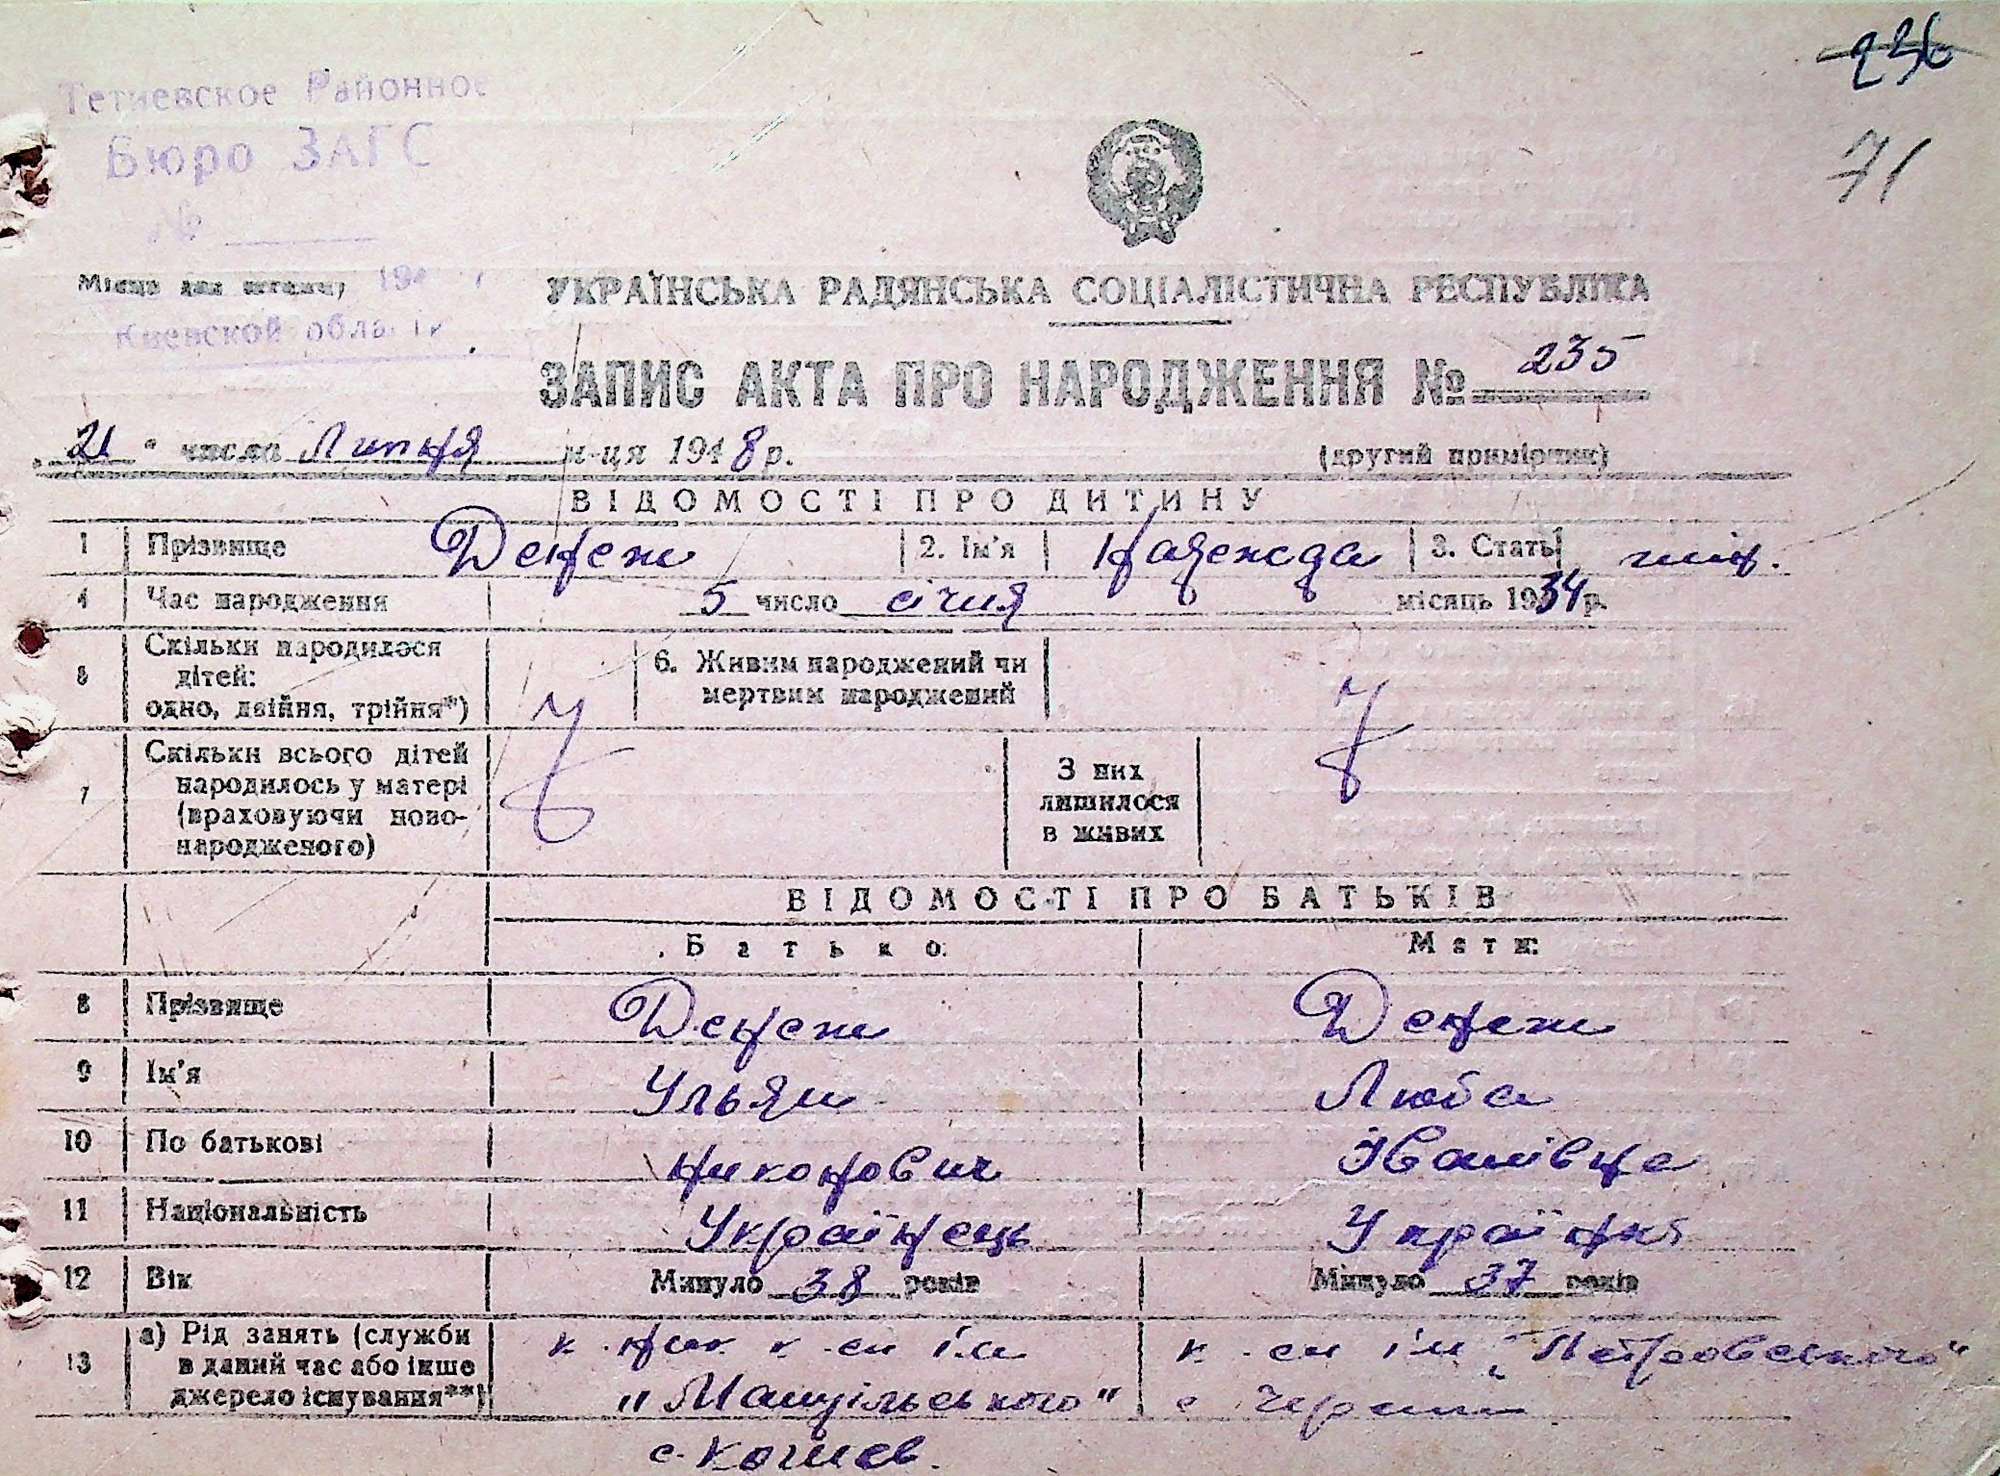 236
Тетиевское Районное
Бюро ЗАГС
71
№
Місце для штампу 194
Киевской области
УКРАЇНСЬКА РАДЯНСЬКА СОЦІАЛІСТИЧНА РЕСПУБЛІКА
ЗАПИС АКТА ПРО НАРОДЖЕННЯ № 235
„21“ числа Липня м-ця 1948 р. (другий примірник)
ВІДОМОСТІ ПРО ДИТИНУ
1 Прізвище Денеж 2. Ім'я Надежда 3. Стать жін.
4 Час народження 5 число січня місяць 1934 р.
5 Скільки народилося дітей: одно, двійня, трійня*)
6. Живим народжений чи мертвим народжений
7 Скільки всього дітей народилось у матері (враховуючи новонародженого)
З них лишилося в живих
ВІДОМОСТІ ПРО БАТЬКІВ
Батько: Мати:
8 Прізвище Денеж Денеж
9 Ім'я Ульян Люба
10 По батькові Никонович Іванівна
11 Національність Українець Українка
12 Вік Минуло 38 років Минуло 37 років
13 а) Рід занять (служби в даний час або інше джерело існування**)
к-ник к-сп ім к-сп ім „Петровського“
"Мануїльського" с
с.